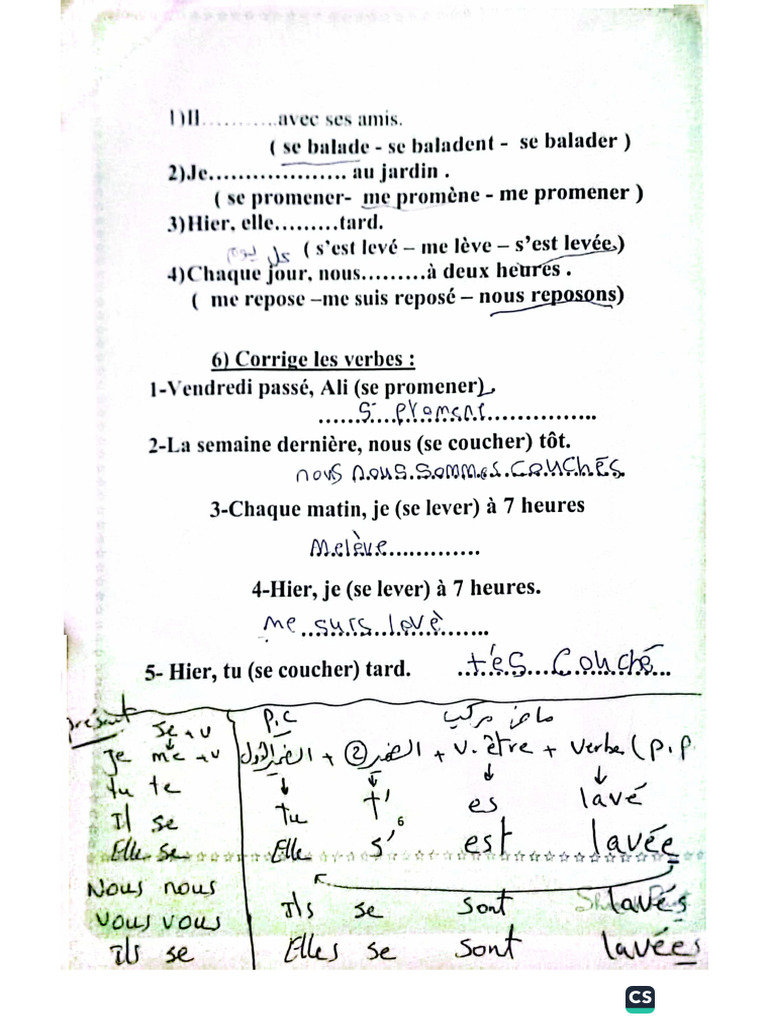 1)Il...........avec ses amis.
( se balade - se baladent - se balader )
2)Je................... au jardin .
( se promener- me promène - me promener )
3)Hier, elle.........tard.
كل يوم ( s'est levé – me lève – s'est levée )
4)Chaque jour, nous.........à deux heures .
( me repose –me suis reposé – nous reposons)
6) Corrige les verbes :
1-Vendredi passé, Ali (se promener)
2-La semaine dernière, nous (se coucher) tôt.
nous nous sommes couchés
3-Chaque matin, je (se lever) à 7 heures
me lève
4-Hier, je (se lever) à 7 heures.
me suis levè
5- Hier, tu (se coucher) tard. t'es Couché
présent se + v P.C ماض مركب
Je me + v الضمير الأول + الضمير 2 + v. être + verbe ( p.p
tu te tu t' es lavé
Il se 6
Elle se Elle s' est lavée
Nous nous Ils se sont lavés
vous vous
Ils se Elles se sont lavées
CS